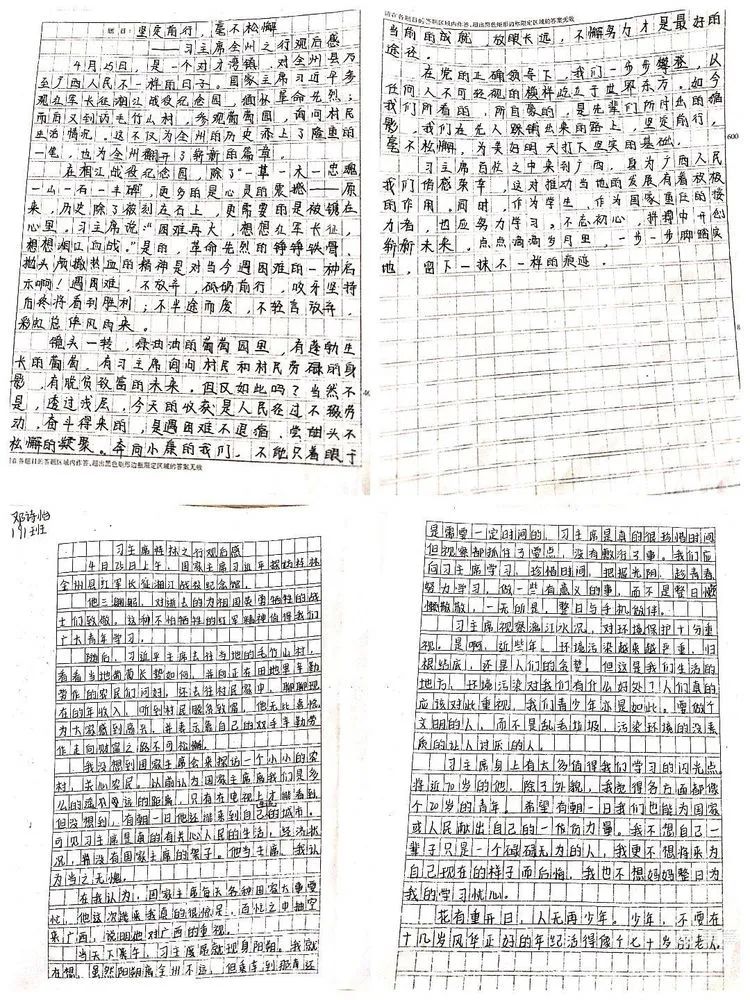 请在各题目的答题区域内作答,超出黑色矩形边框限定区域的答案无效
题目:坚定前行,毫不松懈
——习主席全州之行观后感
4月25日,是一个对才湾镇,对全州县乃
至广西人民不一样的日子。国家主席习近平参
观红军长征湘江战役纪念园,缅怀革命先烈;
而后又到访毛竹山村,参观葡萄园,询问村民
生活情况。这不仅为全州的历史添上了隆重的
一笔,也为全州翻开了崭新的篇章。
在湘江战役纪念园,除了“一草一木一忠魂,
一山一石一丰碑”,更多的是心灵的震撼——原
来,历史除了被刻在石上,更需要的是被镌在
心里。习主席说:“困难再大,想想红军长征,
想想湘江血战。”是的,革命先烈的铮铮铁骨,
抛头颅撒热血的精神是对当今遇困难的一种启
示啊!遇困难,不放弃,砥砺前行,咬牙坚持
后终将看到胜利;不半途而废,不轻言放弃,
彩虹总伴风雨来。
镜头一转,绿油油的葡萄园里,有蓬勃生
长的葡萄,有习主席询问村民和村民劳碌的身
影,有脱贫致富的未来。但仅如此吗?当然不
是,透过浅层,今天的收获是人民经过不懈劳
动,奋斗得来的,是遇困难不退缩,尝甜头不
松懈的凝聚。奔向小康的我们,不能只着眼于
请在各题目的答题区域内作答,超出黑色矩形边框限定区域的答案无效
当前的成就,放眼长远,不懈努力才是最好的
途径。
在党的正确领导下,我们一步步攀登,以
任何人不可轻视的模样屹立于世界东方。如今
我们所看的,所自豪的,是先辈们所付出的缩
影,我们在先人踩踏出来的路上,坚定前行,
毫不松懈,为美好明天打下坚实的基础。
600
习主席百忙之中来到广西,身为广西人民
我们倍感荣幸,这对推动当地的发展有着积极
的作用。同时,作为学生,作为国家重任的接
力者,也应努力学习。不忘初心,拼搏中开创
崭新未来。点点滴滴岁月里,一步一步脚踏实
地,留下一抹不一样的痕迹。
邓诗怡
191班
习主席桂林之行观后感
4月25日上午,国家主席习近平探访桂林
全州县红军长征湘江战役纪念馆。
他三鞠躬,对逝去的为祖国英勇牺牲的战
士们致敬,这种不怕牺牲的红军精神值得我们
广大青年学习。
随后,习近平主席去往当地的毛竹山村,
看看当地葡萄长势如何,并向正在田地里辛勤
劳作的农民们问好,还去往村民家中,聊聊现
在的年收入,听到村民脱贫致富,他无比喜悦
为大家感到高兴,并表示靠自己的双手辛勤劳
作走向财富之路不可松懈。
我没想到国家主席会来探访一个小小的农
村,关心农民。以前认为国家主席离我们是多
么的遥不可及的距离,只有在电视上才能看到
但没想到,有朝一日他还能来到自己的城市。
可见习主席是真的有关心人民的生活,经济状
况,并没有国家主席的架子。他当主席,我认
为当之无愧。
在我认为,国家主席每天各种国家大事要
忙,他这次能来我真的很惊讶,百忙之中抽空
来广西,说明他对广西的重视。
当天下午,习主席居然现身阳朔。我就
在想,虽然阳朔离全州不远,但乘车到那再还
是需要一定时间的,习主席是真的很珍惜时间
但视察都抓住了要点,没有敷衍了事。我们应
向习主席学习,珍惜时间,把握光阴,趁青春,
努力学习,做一些有意义的事,而不是整日懒
懒散散,一无所是,整日与手机做伴。
习主席视察漓江水况,对环境保护十分重
视。是啊,近些年,环境污染越来越严重,归
根结底,还是人们的贪婪。但这是我们生活的
地方,环境污染对我们有什么好处?人们真的
应该对此重视,我们青少年亦是如此。要做个
文明的人,而不是乱丢垃圾,污染环境的没素
质的让人讨厌的人。
习主席身上有太多值得我们学习的闪光点
将近70岁的他,除了外貌,我觉得各方面都像
个20岁的青年。希望有朝一日我们也能为国家
或人民献出自己的一份份力量。我不想自己一
辈子只是一个碌碌无为的人,我更不想将来为
自己现在的样子而后悔,我也不想妈妈整日为
我的学习忧心。
花有重开日,人无再少年。少年,不要在
十几岁风华正好的年纪活得像个七十岁的老人。